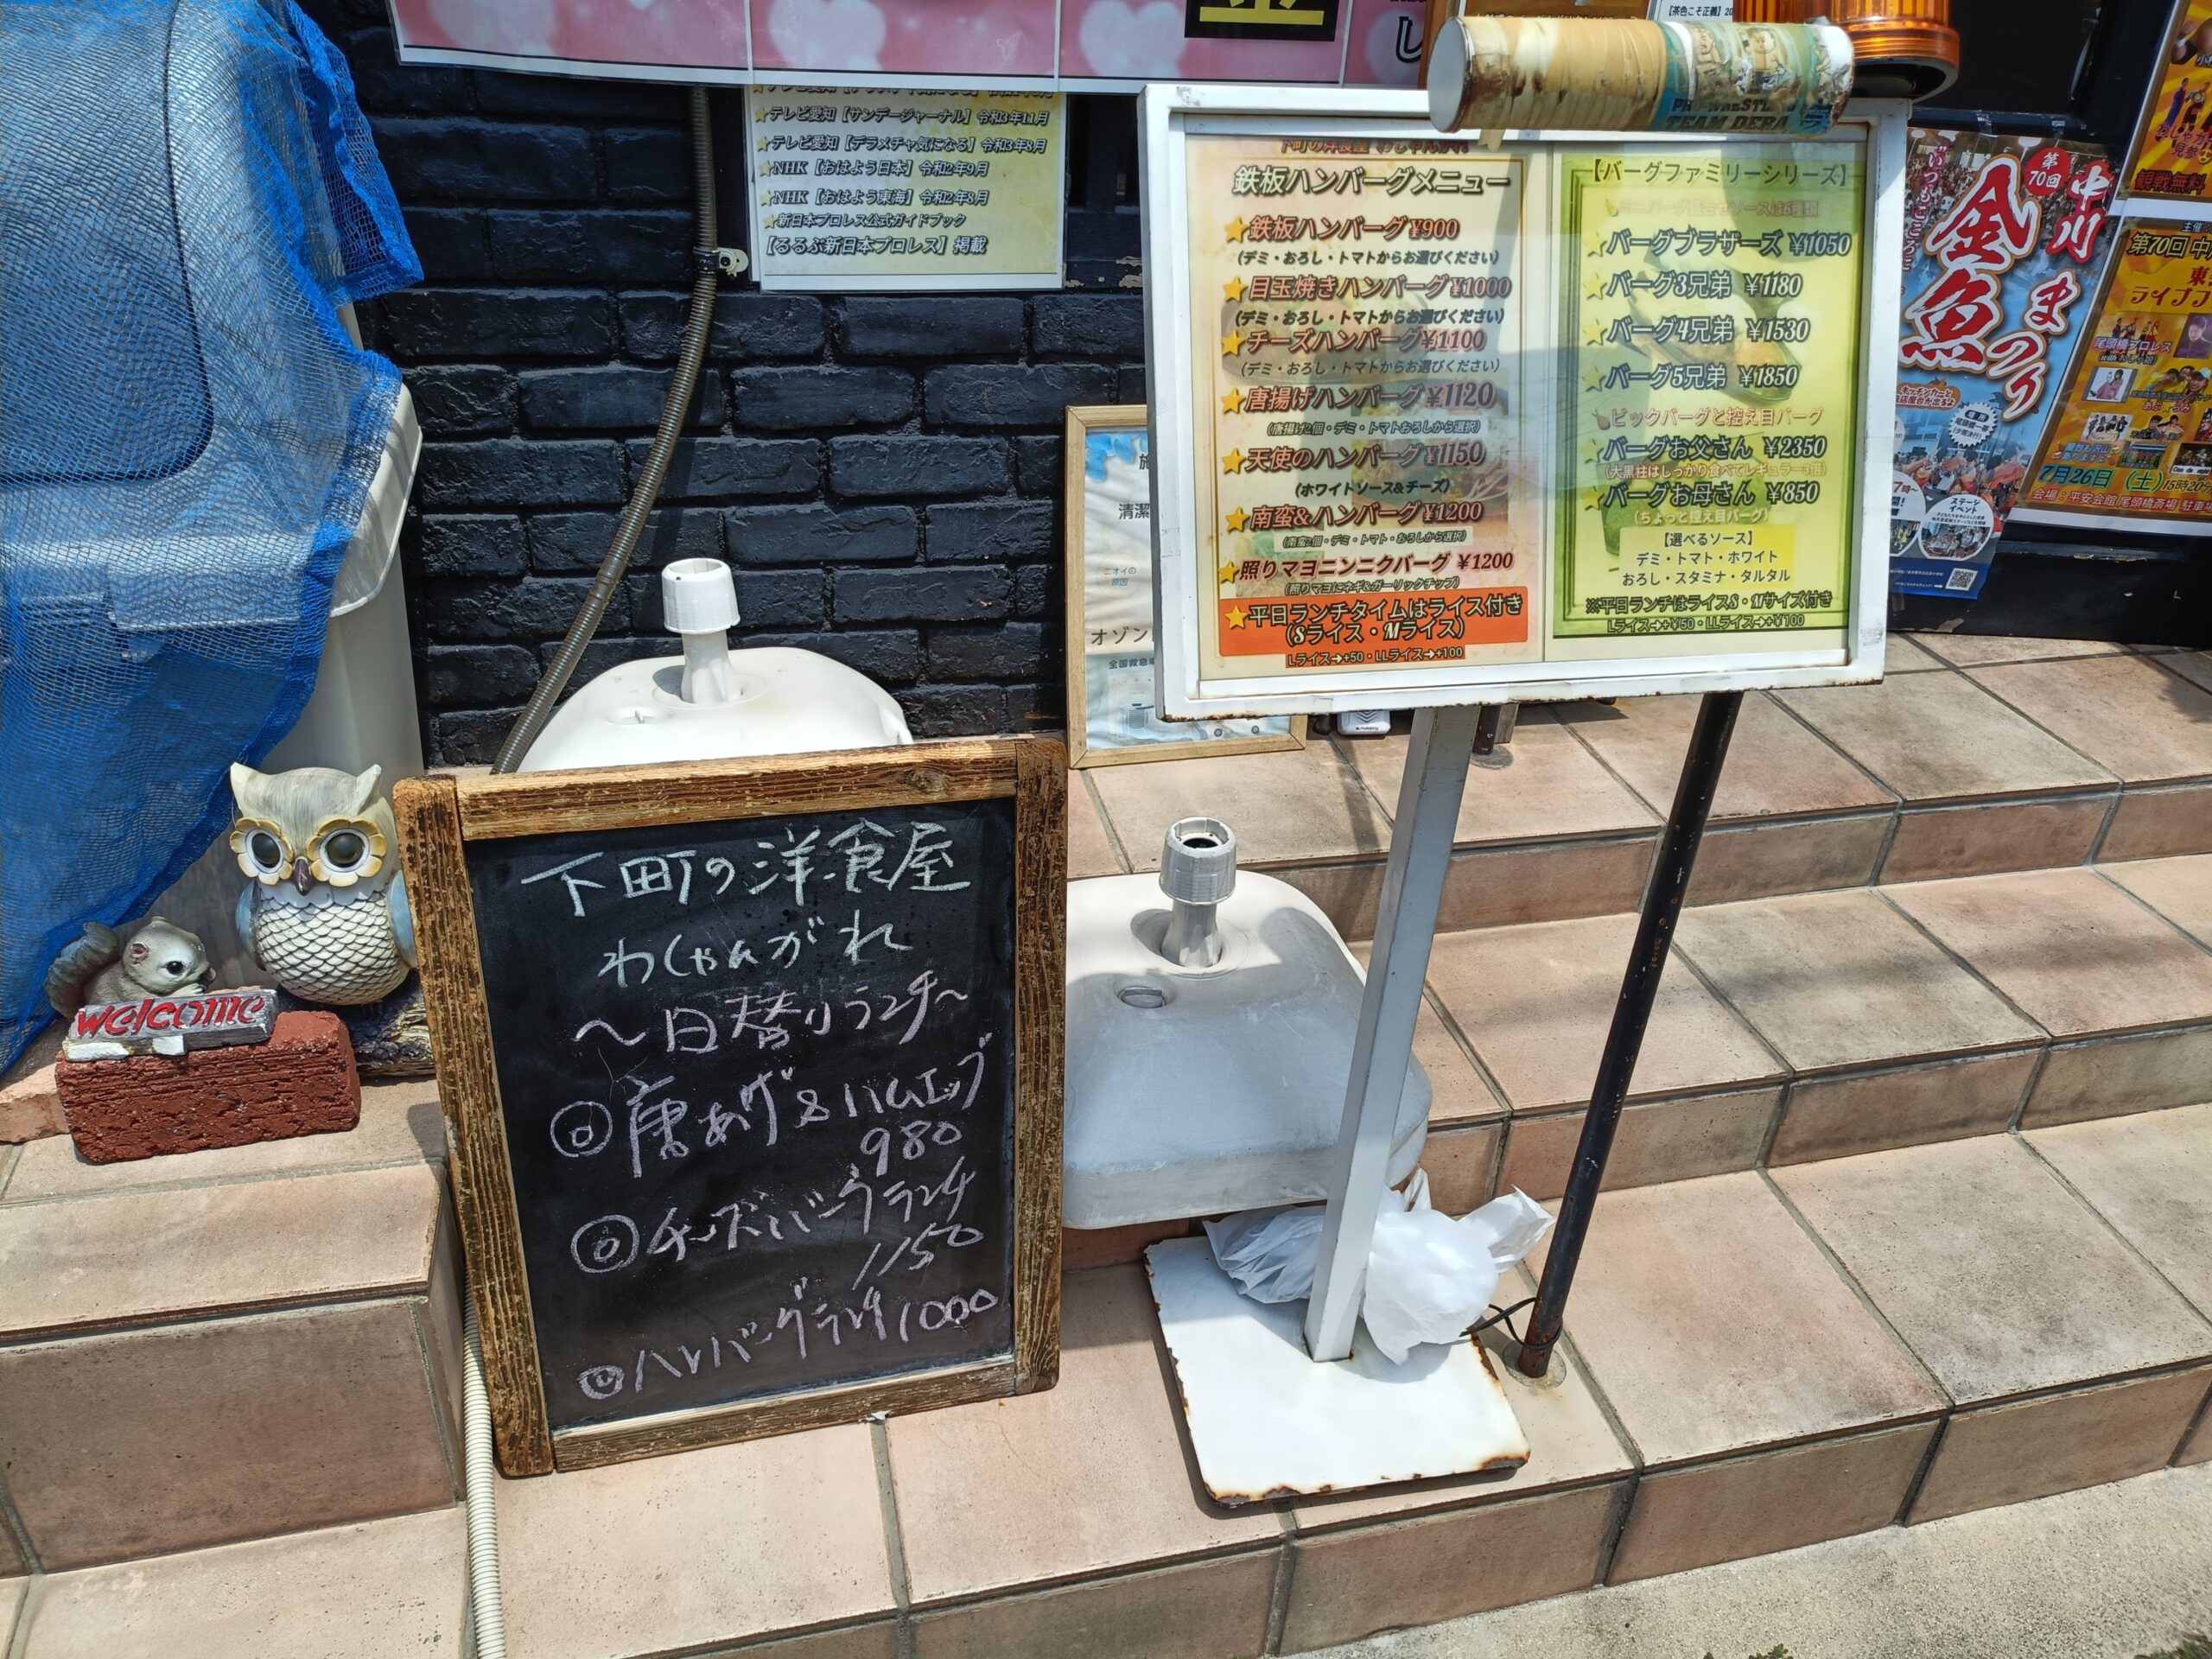 ★テレビ愛知【サンデージャーナル】令和3年11月
★テレビ愛知【デラメチャ気になる】令和3年8月
★NHK【おはよう日本】令和2年9月
★NHK【おはよう東海】令和2年8月
★新日本プロレス公式ガイドブック
【るるぶ新日本プロレス】掲載
【茶色こそ正義】
PRO-WRESTLING
TEAM DERA
鉄板ハンバーグメニュー
★鉄板ハンバーグ¥900
(デミ・おろし・トマトからお選びください)
★目玉焼きハンバーグ¥1000
(デミ・おろし・トマトからお選びください)
★チーズハンバーグ¥1100
(デミ・おろし・トマトからお選びください)
★唐揚げハンバーグ¥1120
(唐揚げ2個・デミ・トマトおろしから選択)
★天使のハンバーグ¥1150
(ホワイトソース&チーズ)
★南蛮&ハンバーグ¥1200
(南蛮2個・デミ・トマト・おろしから選択)
★照りマヨニンニクバーグ ¥1200
(照りマヨにネギ&ガーリックチップ)
★平日ランチタイムはライス付き
(Sライス・Mライス)
Lライス→+50・LLライス→+100
【バーグファミリーシリーズ】
バーグブラザーズ ¥1050
バーグ3兄弟 ¥1180
バーグ4兄弟 ¥1530
バーグ5兄弟 ¥1850
ビックバーグと控え目バーグ
バーグお父さん ¥2350
(大黒柱はしっかり食べてレギュラー3倍)
バーグお母さん ¥850
(ちょっと控え目バーグ)
【選べるソース】
デミ・トマト・ホワイト
おろし・スタミナ・タルタル
※平日ランチはライスS・Mサイズ付き
Lライス→+¥50・LLライス→+¥100
第70回
中川
金魚
まつり
いつもこころに
ステージイベント
観戦無料
主催
第70回 中
尾頭橋プロレス
7月26日(土)15時20
会場：平安会館 尾頭橋斎場 駐車場
清潔
ニオイの
原因
オゾン
welcome
下町の洋食屋
わしゃんがれ
～日替りランチ～
◎唐あげ&ハムエッグ
980
◎チーズハンバーグランチ
1150
◎ハンバーグランチ1000